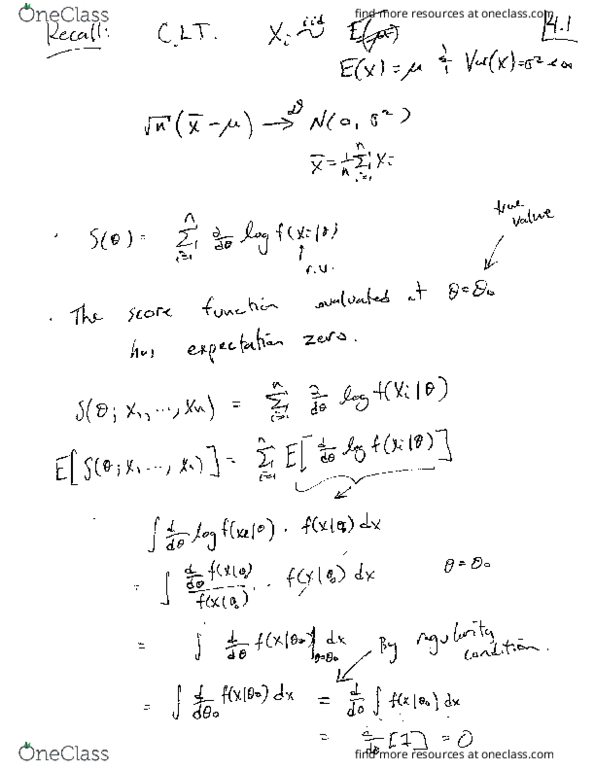 OneClass
find more resources at oneclass.com
Recall: C.L.T. Xi ~ iid 4.1
E(x) = μ & Var(x) = σ² < ∞
√n (x̄ - μ) →ᵈ N(0, σ²)
x̄ = 1/n Σⁿᵢ₌₁ Xi
· S(θ) = Σⁿᵢ₌₁ d/dθ log f(Xi|θ)
↑
r.v.
true value
· The score function evaluated at θ = θ₀
has expectation zero.
S(θ; X₁, ..., Xn) = Σⁿᵢ₌₁ d/dθ log f(Xi|θ)
E[S(θ; X₁ ..., Xn)] = Σⁿᵢ₌₁ E[d/dθ log f(Xi|θ)]
∫ d/dθ log f(x|θ) · f(x|θ₀) dx
= ∫ (d/dθ f(x|θ₀))/(f(x|θ₀)) · f(x|θ₀) dx θ = θ₀
= ∫ d/dθ f(x|θ₀)|θ=θ₀ dx By regularity condition.
= ∫ d/dθ₀ f(x|θ₀) dx = d/dθ ∫ f(x|θ₀) dx
= d/dθ [1] = 0
OneClass
find more resources at oneclass.com